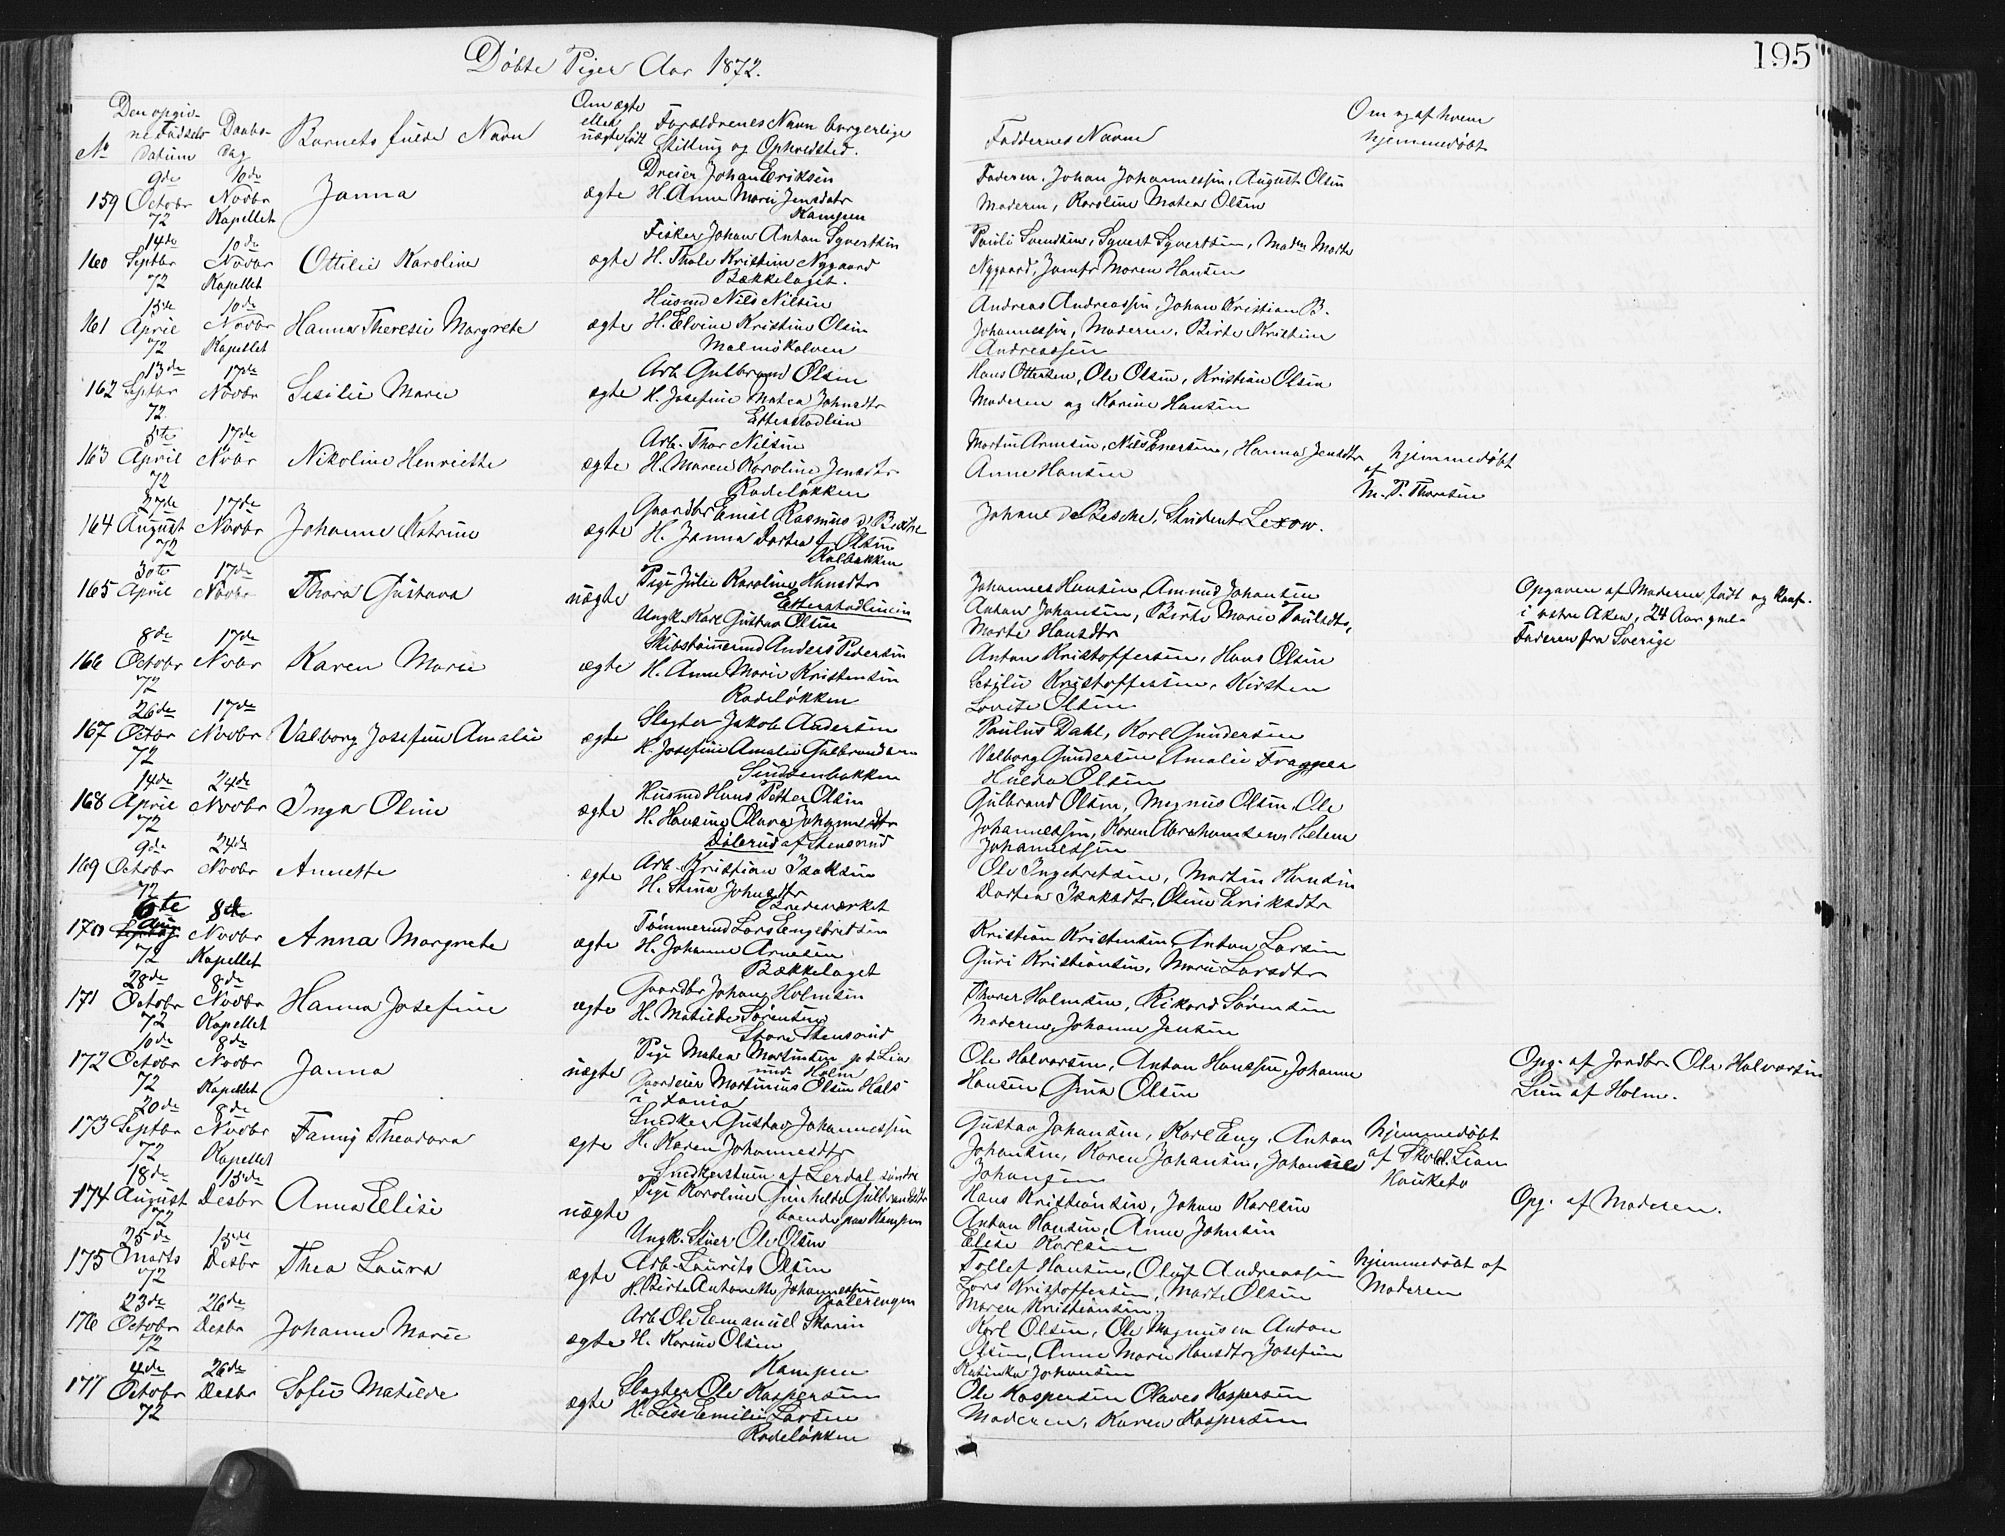 Døbte Piger Aar 1872.
195
No
Den opgiv-
ne Fødsels
Datum
Daabs-
dag
Barnets fulde Navn
Om ægte
eller
uægte født
Forældrenes Navn borgerlige
Stilling og Opholdsted.
Faddernes Navne
Om og af hvem
hjemmedøbt
159
9de
Octobr
72
10de
Novbr
Kapellet
Janna
ægte
Dreier Johan Eriksen
H. Anne Marie Jensdatr
Kampen
Faderen, Johan Johannessen, August Olsen
Moderen, Karoline Matea Olsen
160
14de
Septbr
72
10de
Novbr
Kapellet
Ottilie Karoline
ægte
Fisker Johan Anton Syvertsen
H. Thale Kristine Nygaard
Bækkelaget.
Pauli Svendsen, Syvert Syvertsen, Madm Marte
Nygaard, Jomfr Maren Hansen
161
15de
April
72
10de
Novbr
Kapellet
Hanna Theresie Margrete
ægte
Husmd Nils Nilsen
H. Elvine Kristine Olsen
Malmøkalven
Andreas Andreassen, Johan Kristian B.
Johannessen, Moderen, Berte Kristine
Andreassen
162
13de
Septbr
72
17de
Novbr
Sesilie Marie
ægte
Arb. Gulbrand Olsen
H. Josefine Matea Johnsdtr
Etterstadlien
Hans Ottersen, Ole Olsen, Kristian Olsen
Moderen og Karine Hansen
163
5te
April
72
17de
Nvbr
Nikoline Henriette
ægte
Arb. Thor Nilsen
H. Maren Karoline Jensdtr
Rodeløkken
Martin Arnesen, Nils Enersen, Hanna Jensdtr
Anne Hansen
hjemmedøbt
af
M. P. Thoresen
164
27de
August
72
17de
Novbr
Johanne Katrine
ægte
Gaardbr Emil Rasmus d Besche
H. Janna Dortea f. Olsen
Kalbakken
Johan de Besche, Student Lexow.
165
30te
April
17de
Novbr
Thora Gustava
uægte
Pige Julie Karoline Hansdtr
Etterstadlien
Ungk. Karl Gustav Olsen
Johannes Hansen, Amund Johansen
Anton Johansen, Berte Marie Paulsdtr,
Marte Hansdtr
Opgaven af Moderen, født og konf.
i østre Aker, 24 Aar gml.
Faderen fra Sverige
166
8de
Octobr
72
17de
Nvbr
Karen Marie
ægte
Skibstømermd Anders Pedersen
H. Anne Marie Kristensen
Rodeløkken
Anton Kristoffersen, Hans Olsen
Sesilie Kristoffersen, Kirsten
Lovise Olsen
167
26de
Octbr
72
17de
Novbr
Valborg Josefine Amalie
ægte
Slagter Jakob Andersen
H. Josefine Amalie Gulbrandsen
Sinsenbakken
Paulus Dahl, Karl Gundersen
Valborg Gundersen Amalie
Hulda Olsen
168
14de
April
72
24de
Novbr
Inga Oline
ægte
Husmd Hans Petter Olsen
H. Hansine Olava Johannesdtr
Dølerud af Stensrud
Gulbrand Olsen, Magnus Olsen, Ole
Johannessen, Karen Abrahamsen, Helene
Johannessen
169
9de
Octobr
72
24de
Novbr
Annette
ægte
Arb. Kristian Isaksen
H. Stina Johnsdtr
Bredeverket
Ole Ingebretsen, Martin Hansen
Dortea Isaksdtr, Oline Eriksdtr
170
6te
Aug
72
8de
Novbr
Kapellet
Anna Margrete
ægte
Tømmermd Lars Engebretsen
H. Johanne Arnesen
Bækkelaget
Kristian Kristensen, Anton Larsen
Guri Kristiansen, Marie Larsdtr
171
28de
Octobr
72
8de
Novbr
Kapellet
Hanna Josefine
ægte
Gaardbr Johan Holmsen
H. Matilde Sørensen
Store Stensrud
Thorer Holmsen, Rikard Sørensen
Moderen, Johanne Jensen
172
10de
Octobr
72
8de
Novbr
Kapellet
Janna
uægte
Pige Matea Martinsen p t Lia
und. Holm
Gaardeier Martinius Olsen Hals
Ole Halvorsen, Anton Hanssen, Johanne
Hansen, Gina Olsen
Opg. af Jordbr Ole Halvorsen
Lien af Holm.
173
20de
Septbr
72
8de
Novbr
Kapellet
Fanny Theodora
ægte
Snedker Gustav Johannessen
H. Karen Johannesdtr
Snedkerstuen af Lerdal søndre
Gustav Johansen, Karl Eng, Anton
Johansen, Karen Johansen, Johannes
Johansen
hjemmedøbt
af Skoel. Lian
Hauketo
174
18de
August
72
15de
Desbr
Anna Elise
uægte
Pige Karoline Gunhilde Gulbrandsdtr
boende paa Kampen
Ungk. Stuer Ole Olsen
Hans Kristiansen, Johan Karlsen
Anton Hansen, Anne Johnsen
Elise Karlsen
Opg. af Moderen.
175
25de
Marts
72
15de
Desbr
Thea Laura
ægte
Arb. Laurits Olsen
H. Berte Antonette Johannessen
Vaalerengen
Tollef Hansen, Oluf Andreassen
Lars Kristoffersen, Marte Olsen
Maren Kristiansen
hjemmedøbt af
Moderen
176
23de
Octobr
72
26de
Desbr
Johanne Marie
ægte
Arb. Ole Emanuel Skaren
H. Karine Olsen
Kampen
Karl Olsen, Ole Magnusen Anton
Olsen, Anne Marie Hansdtr, Josefine
Katinka Johansen
177
4de
Octobr
72
26de
Desbr
Sofie Matilde
ægte
Slagter Ole Kaspersen
H. Lise Emilie Larsen
Rodeløkken
Ole Kaspersen Olaves Kaspersen
Moderen, Karen Kaspersen